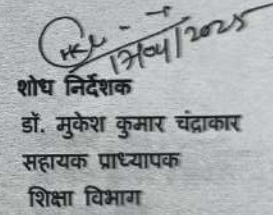 17/04/2025
शोध निर्देशक
डॉ. मुकेश कुमार चंद्राकार
सहायक प्राध्यापक
शिक्षा विभाग